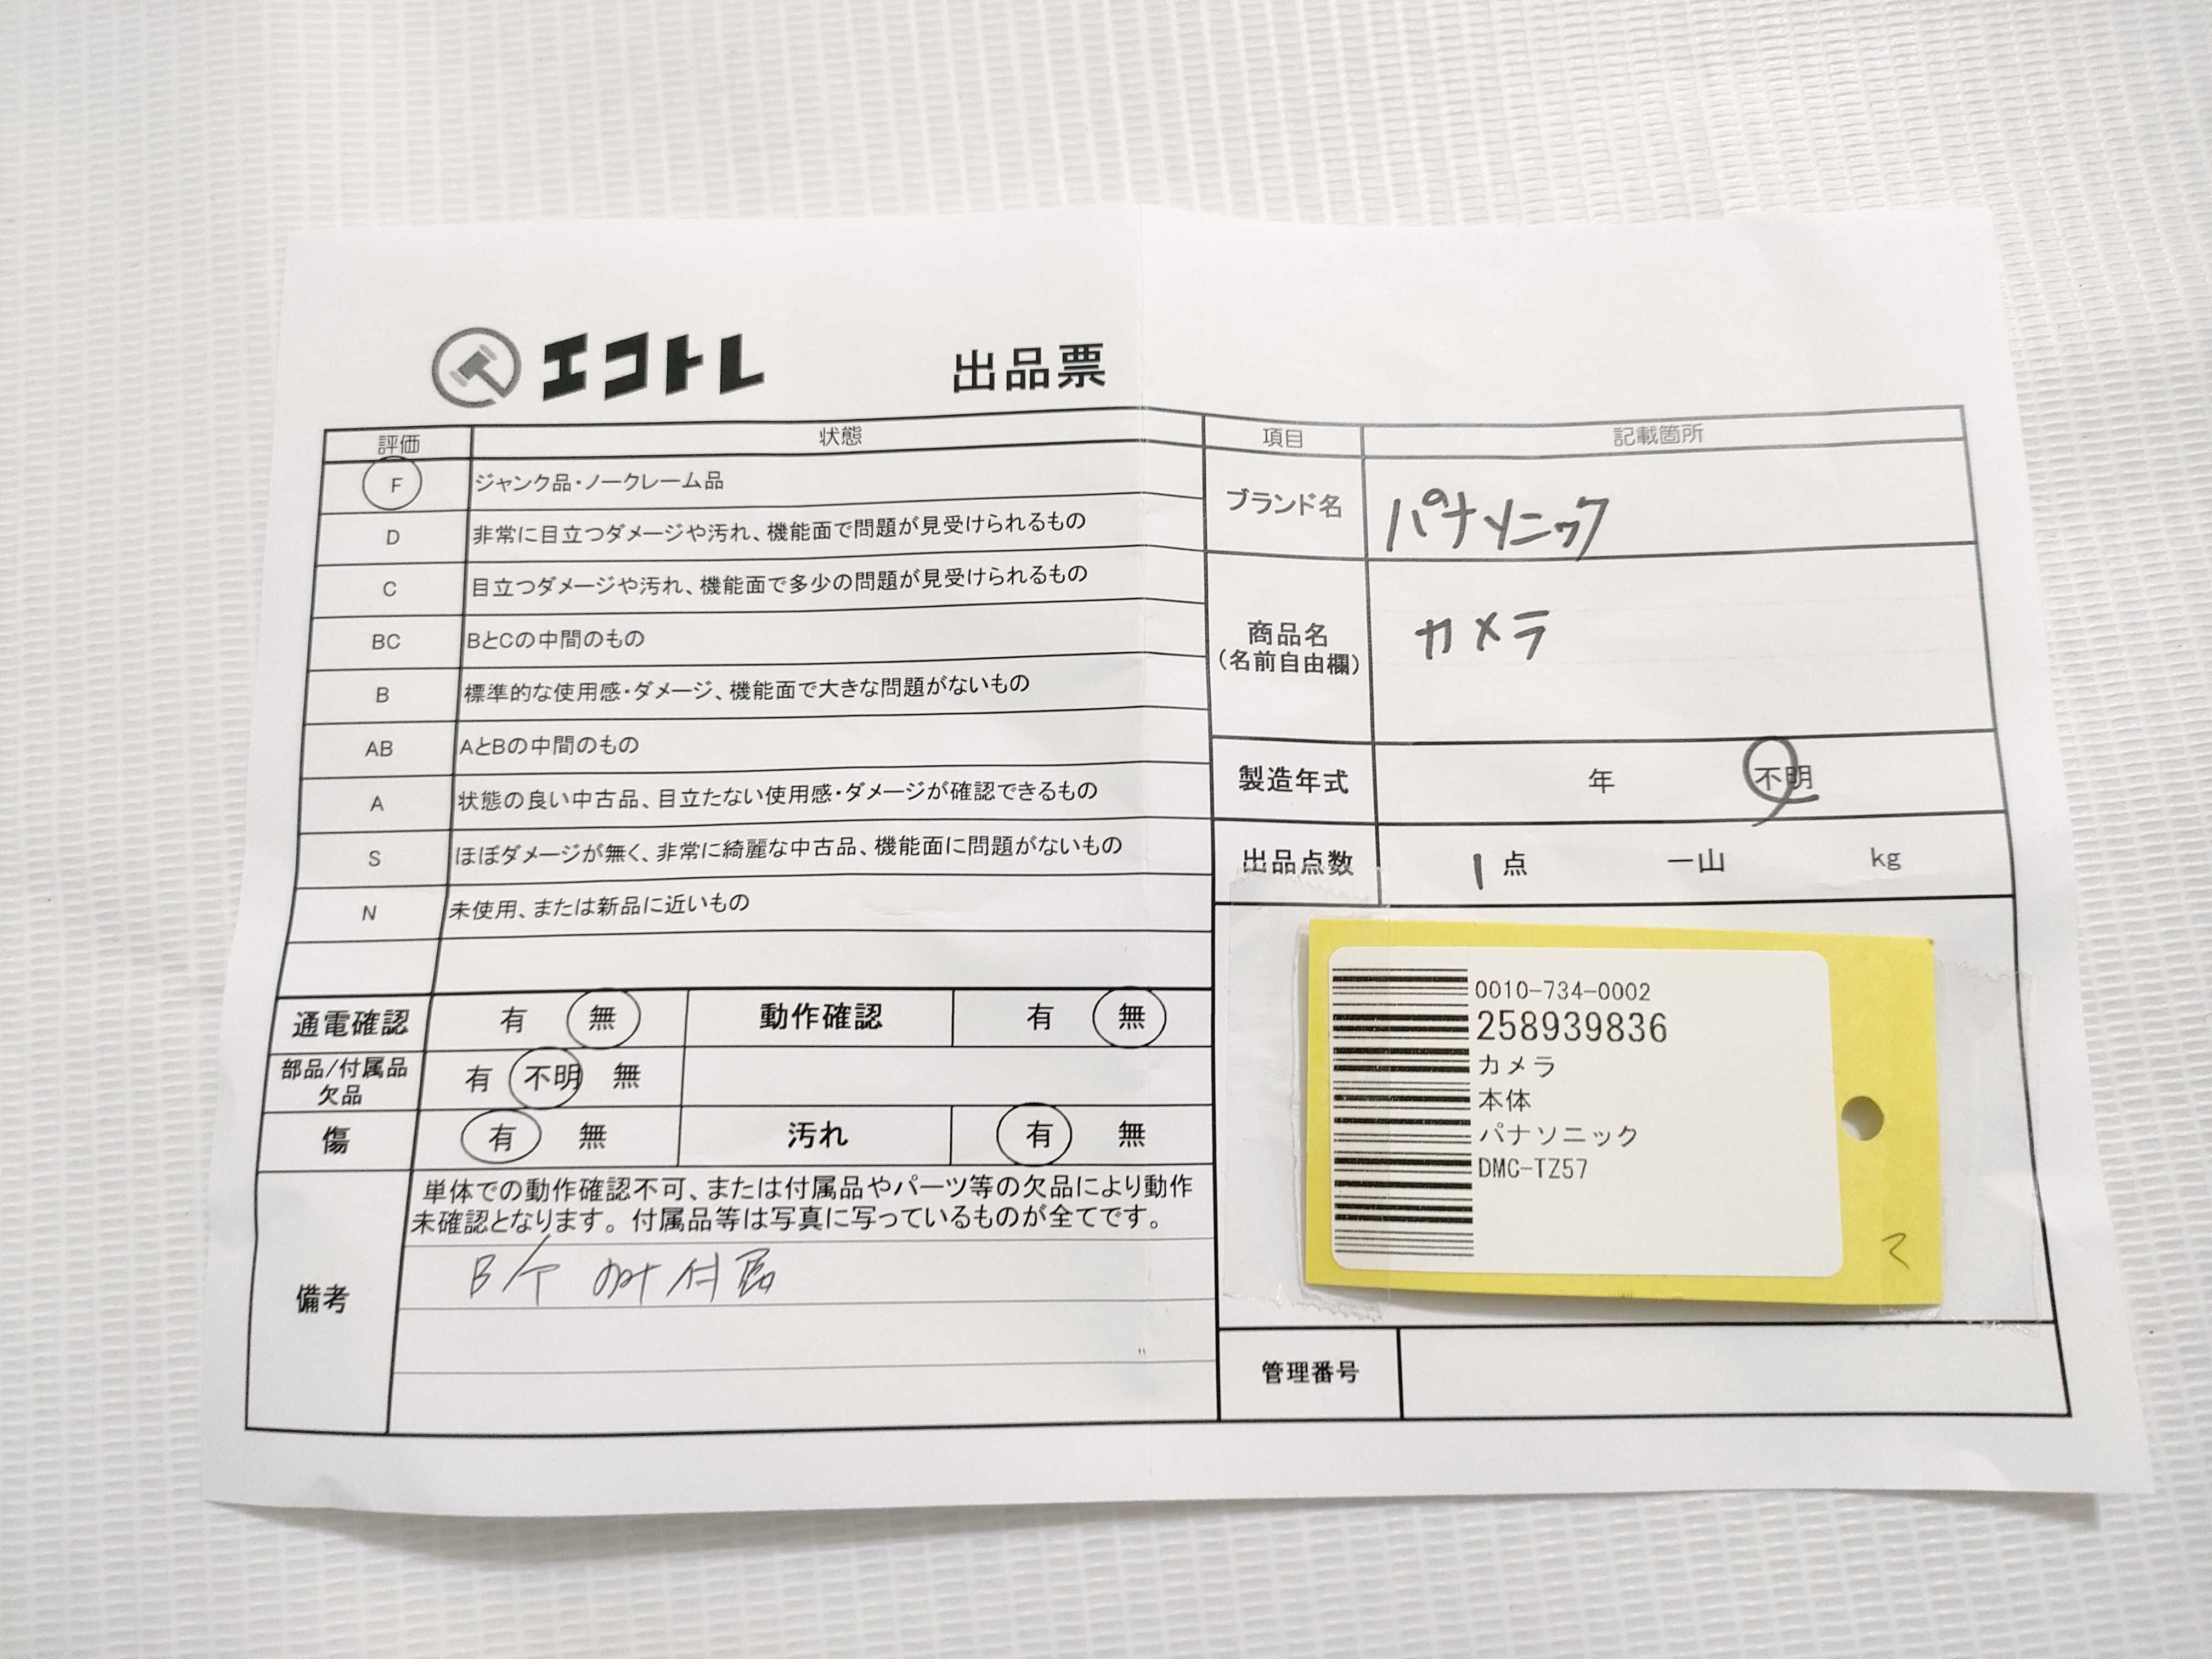 エコトレ 出品票
評価 状態
F ジャンク品・ノークレーム品
D 非常に目立つダメージや汚れ、機能面で問題が見受けられるもの
C 目立つダメージや汚れ、機能面で多少の問題が見受けられるもの
BC BとCの中間のもの
B 標準的な使用感・ダメージ、機能面で大きな問題がないもの
AB AとBの中間のもの
A 状態の良い中古品、目立たない使用感・ダメージが確認できるもの
S ほぼダメージが無く、非常に綺麗な中古品、機能面に問題がないもの
N 未使用、または新品に近いもの
通電確認 有 無 動作確認 有 無
部品/付属品
欠品
有 不明 無
傷 有 無 汚れ 有 無
備考
単体での動作確認不可、または付属品やパーツ等の欠品により動作
未確認となります。付属品等は写真に写っているものが全てです。
付属
項目 記載箇所
ブランド名 パナソニック
商品名
(名前自由欄)
カメラ
製造年式 年 不明
出品点数 1 点 一山 kg
0010-734-0002
258939836
カメラ
本体
パナソニック
DMC-TZ57
管理番号